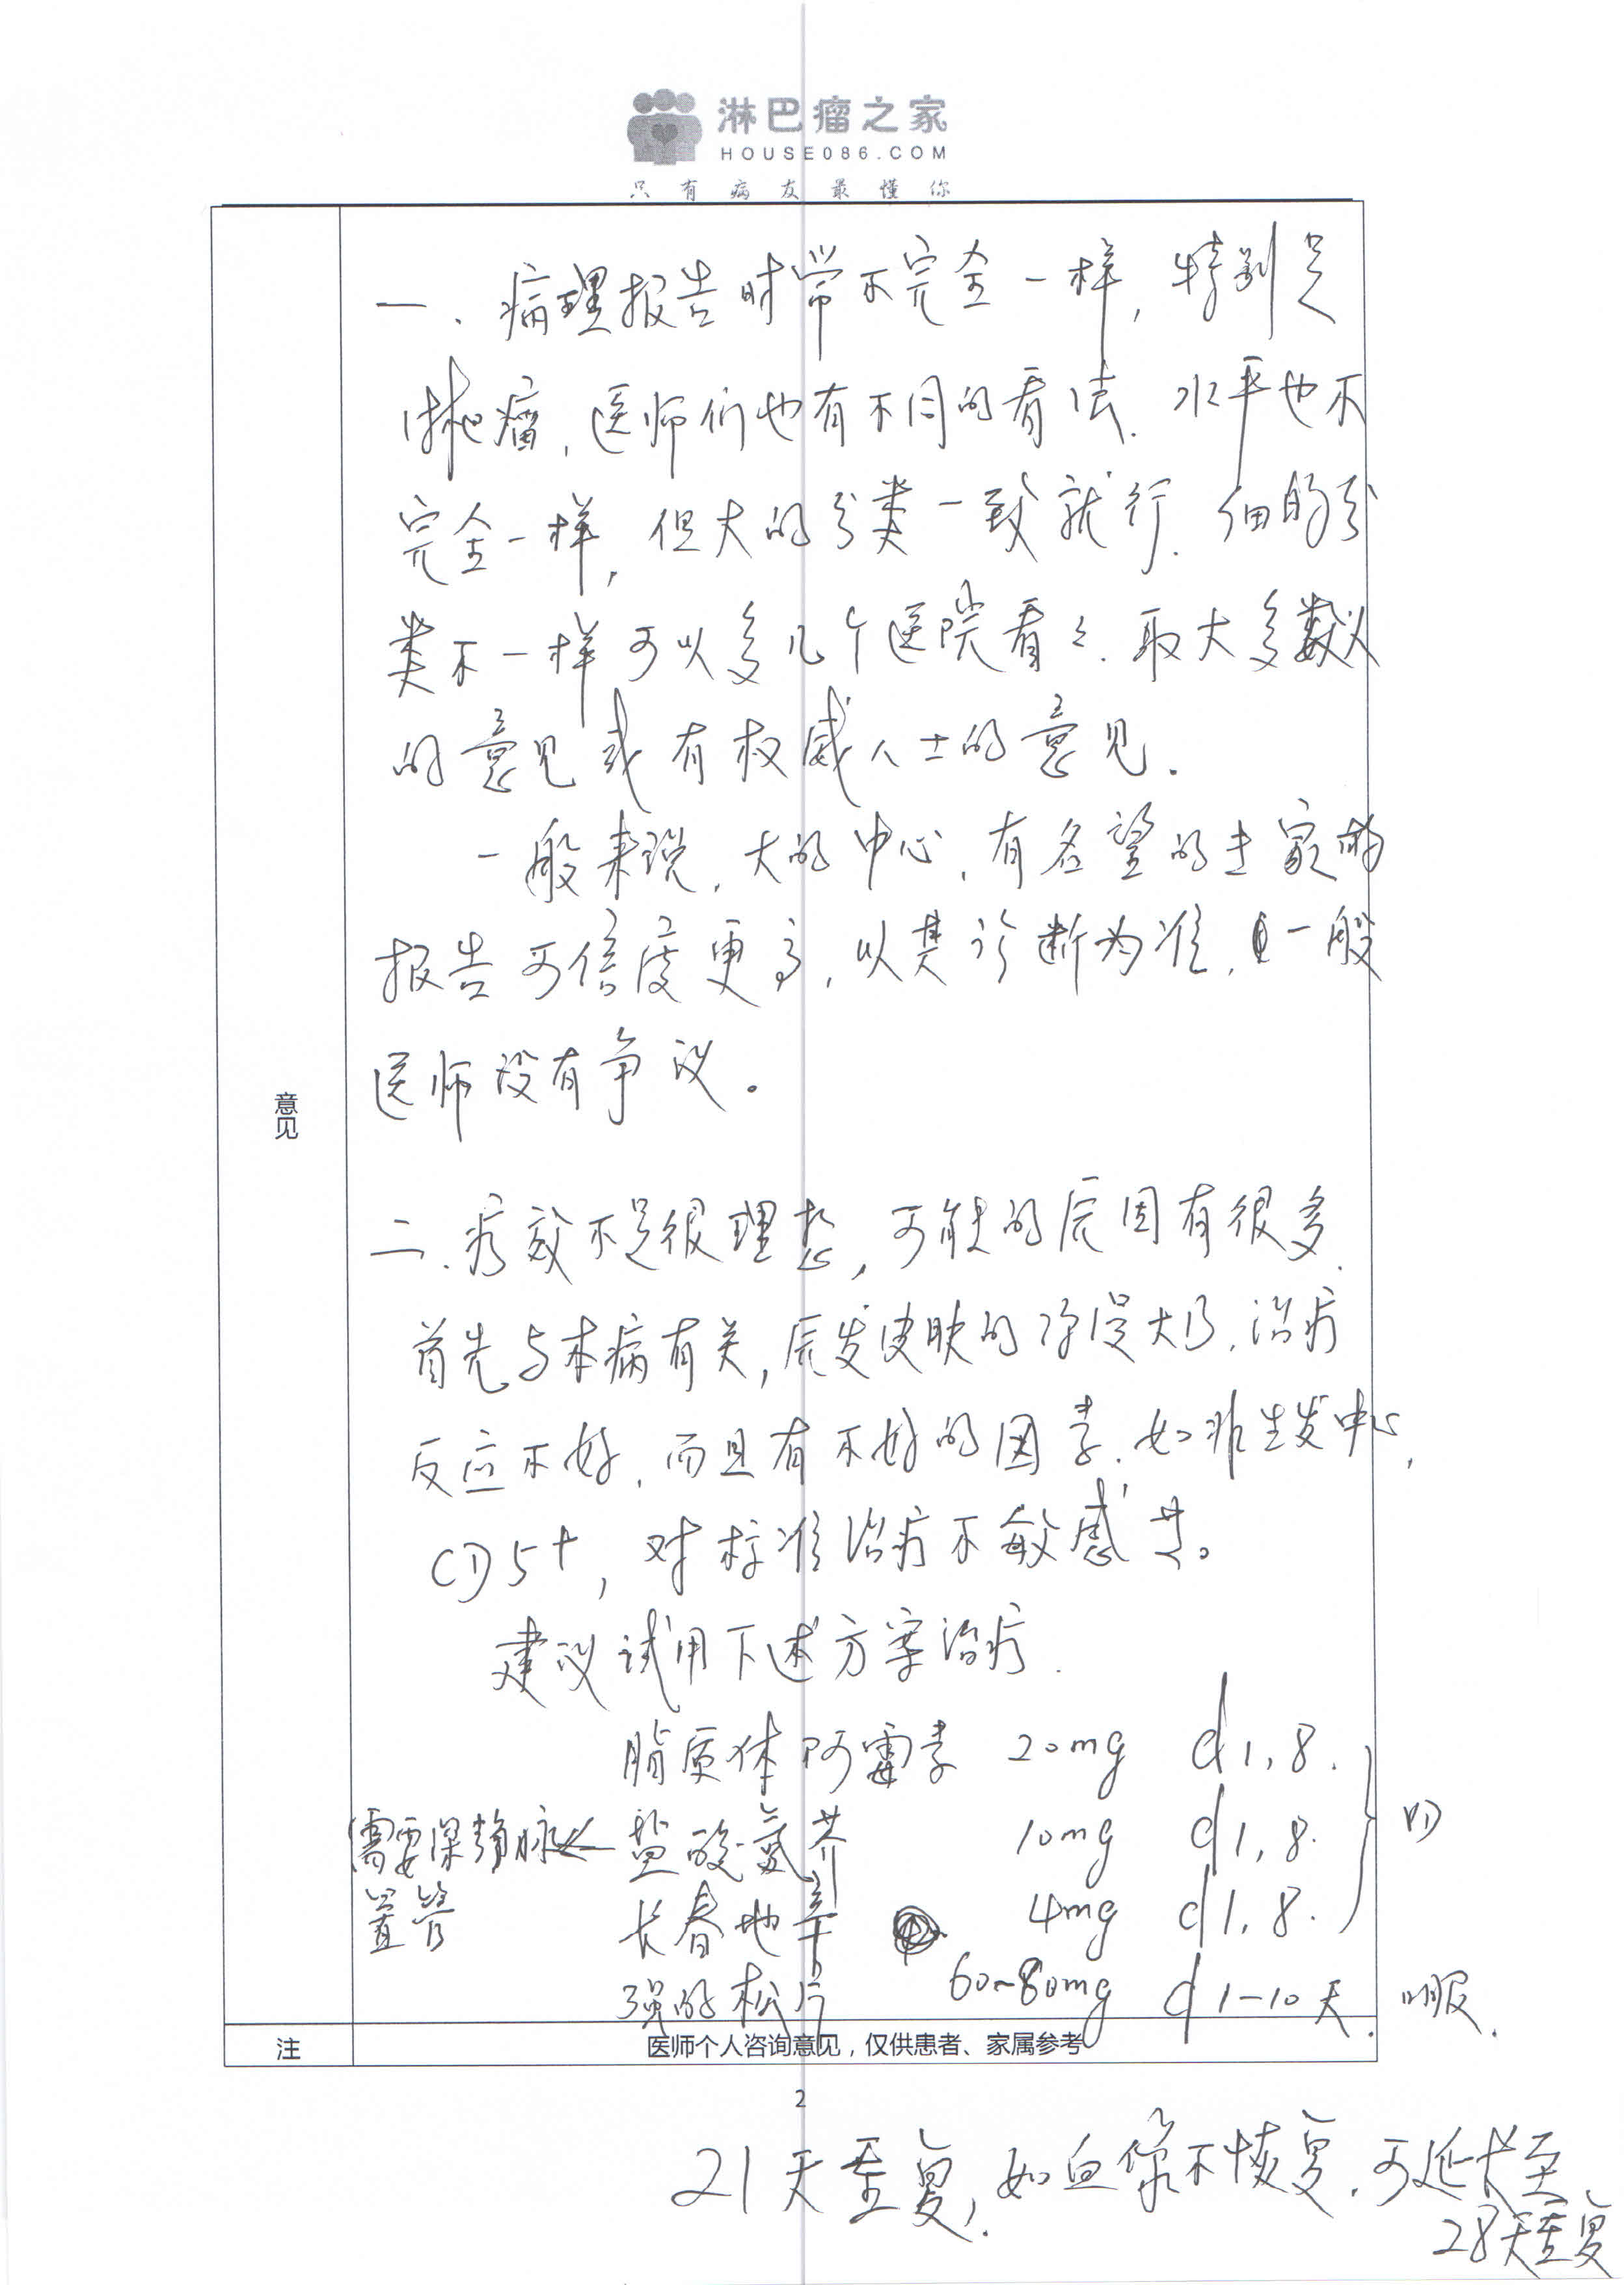 淋巴瘤之家
HOUSE086.COM
只有病友最懂你
一、病理报告时常不完全一样，特别是
淋巴瘤，医师们也有不同的看法．水平也不
完全一样，但大的分类一致就行．细的分
类不一样可以多几个医院看看．取大多数人
的意见或有权威人士的意见．
一般来说，大的中心，有名望的专家的
报告可信度更高，以其诊断为准，一般
医师没有争议。
意见
二．疗效不是很理想，可能的原因有很多．
首先与本病有关，原发皮肤的弥漫大B，治疗
反应不好，而且有不好的因素．如非生发中心，
CD5+，对标准治疗不敏感等。
建议试用下述方案治疗．
脂质体阿霉素 20mg d1,8.
需要深静脉← 盐酸氮芥 10mg d1,8.
置管 长春地辛 4mg d1,8.
强的松片 60~80mg d1-10天．口服．
注 医师个人咨询意见，仅供患者、家属参考
2
21天重复，如血象不恢复．可延长至
28天重复